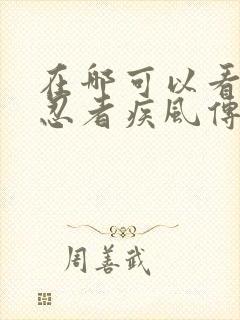 在哪可以看
忍者疾风傳
周善武